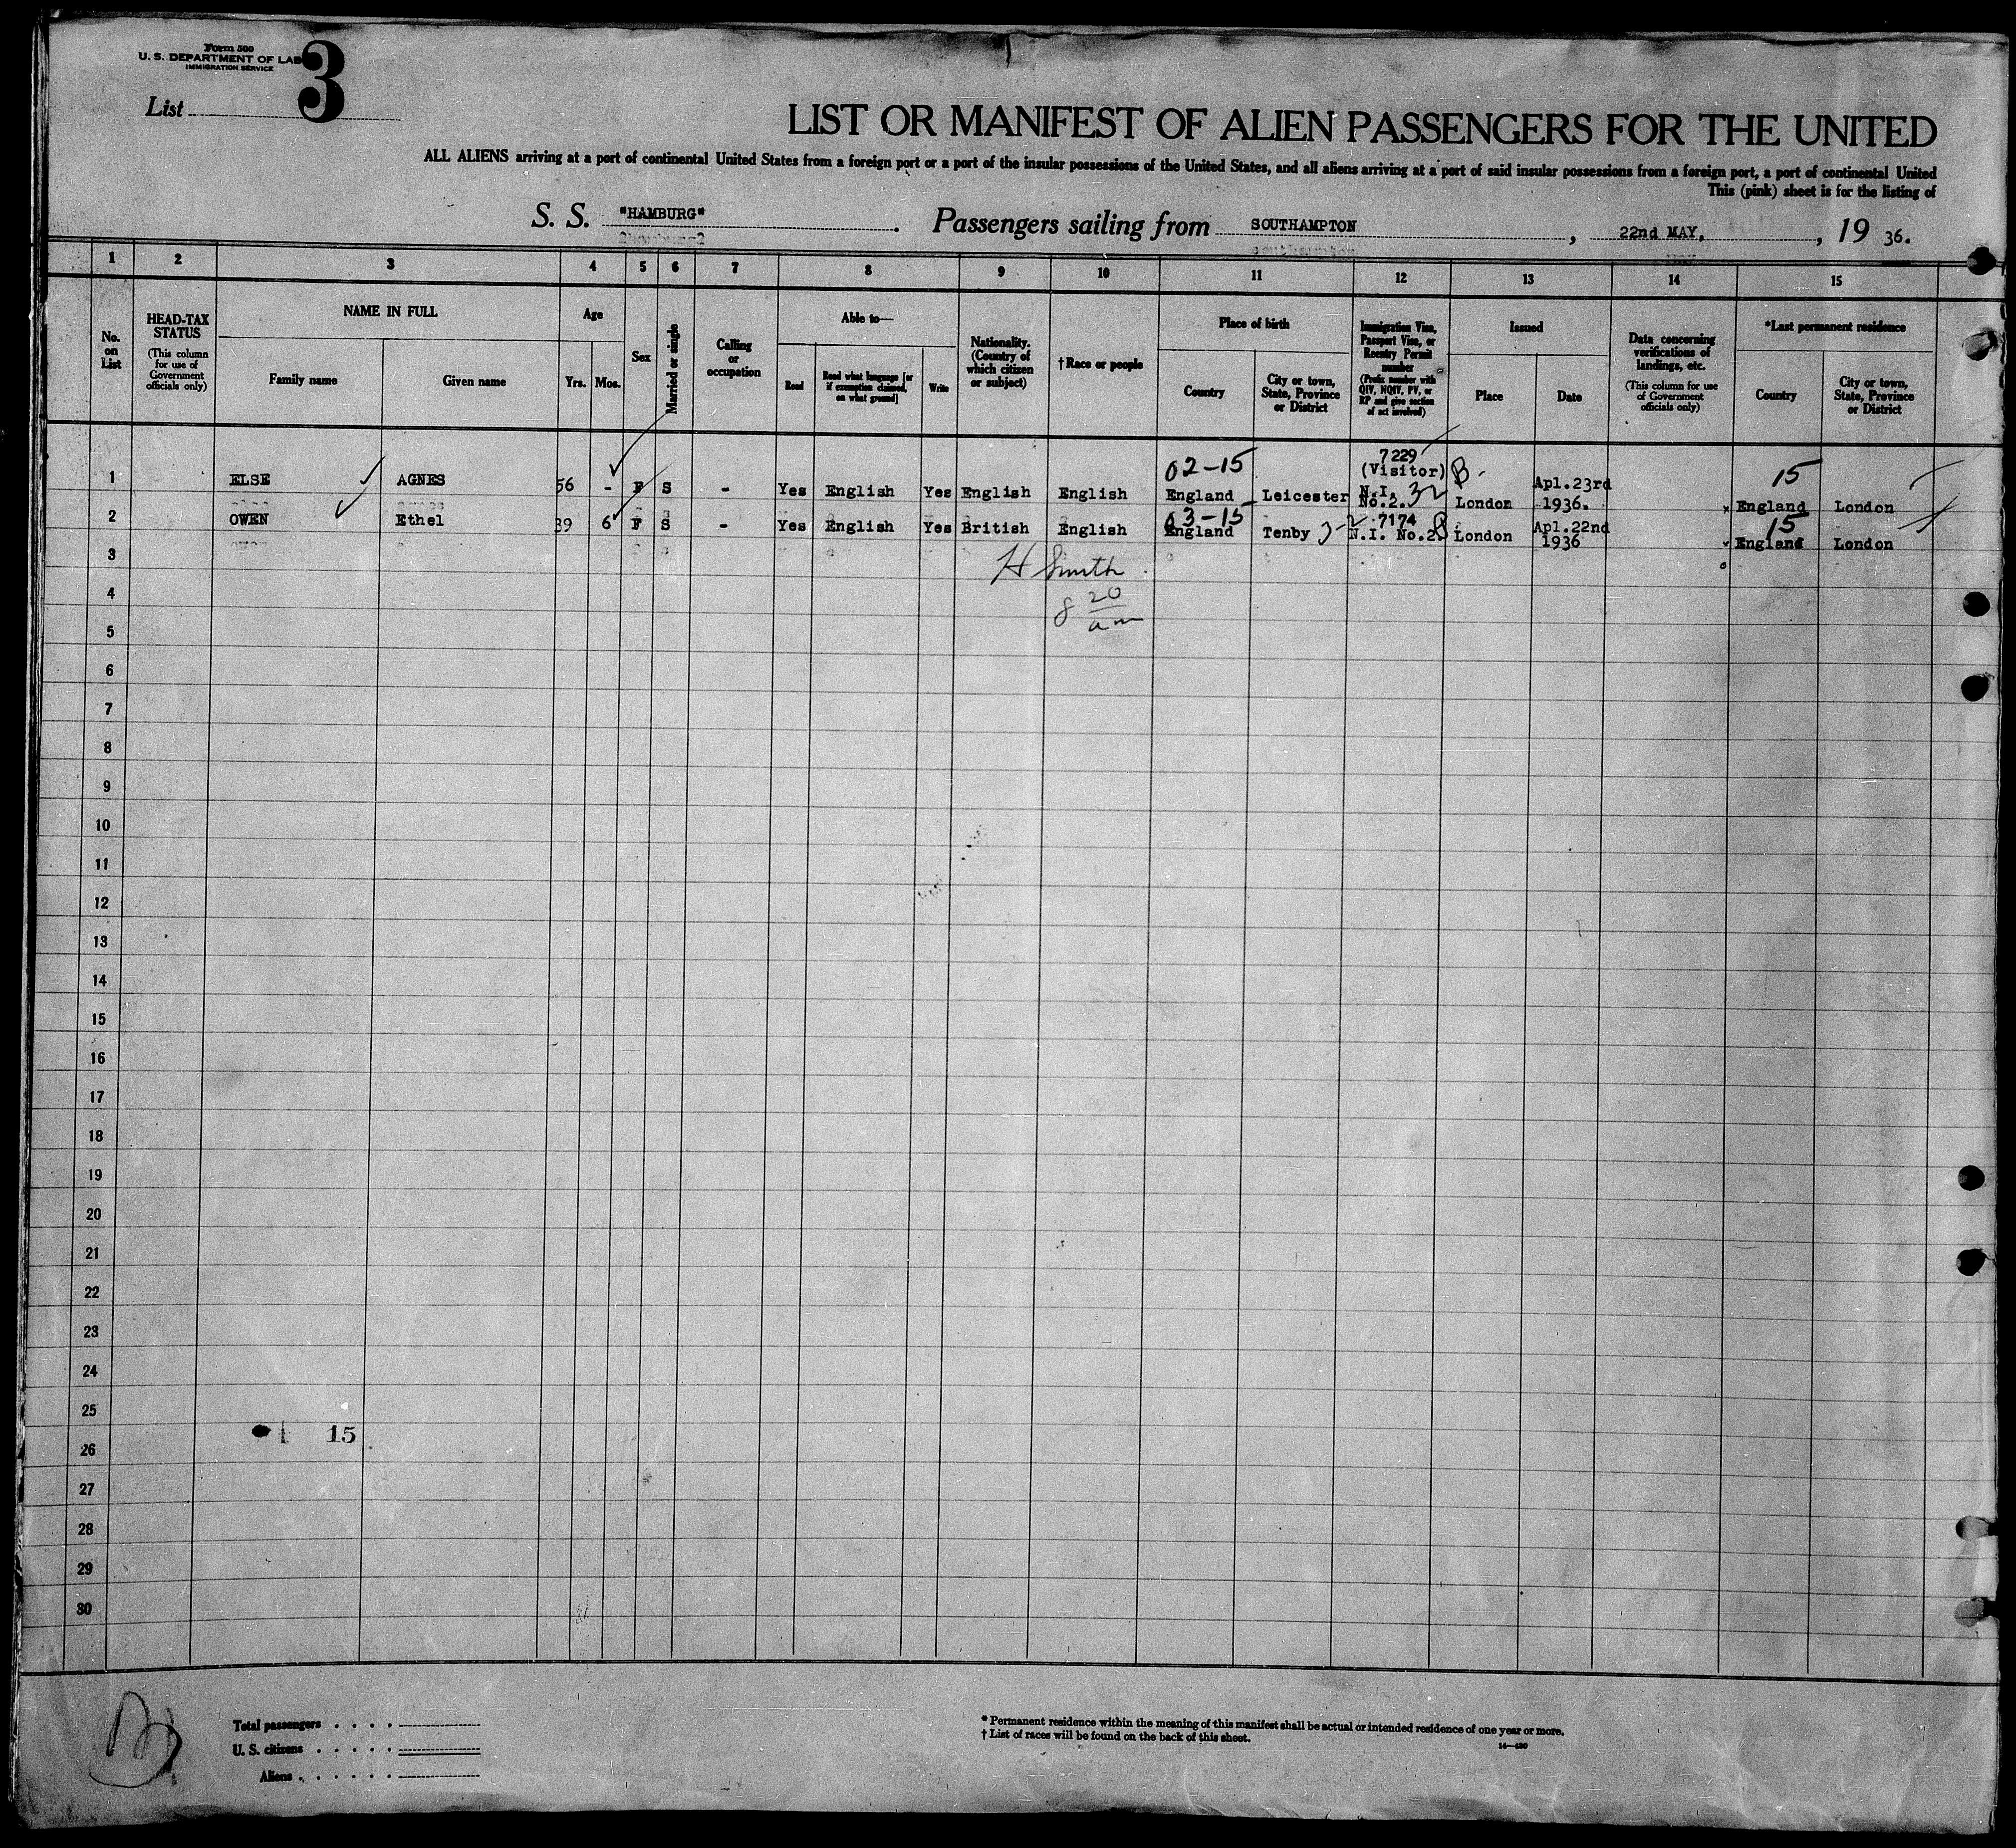 Form 500
U. S. DEPARTMENT OF LAB
IMMIGRATION SERVICE
List 3
LIST OR MANIFEST OF ALIEN PASSENGERS FOR THE UNITED
ALL ALIENS arriving at a port of continental United States from a foreign port or a port of the insular possessions of the United States, and all aliens arriving at a port of said insular possessions from a foreign port, a port of continental United
This (pink) sheet is for the listing of
S. S. "HAMBURG" . Passengers sailing from SOUTHAMPTON , 22nd MAY, , 19 36.
1 2 3 4 5 6 7 8 9 10 11 12 13 14 15
No. on List
HEAD-TAX STATUS
(This column for use of Government officials only)
NAME IN FULL
Family name
Given name
Age
Yrs.
Mos.
Sex
Married or single
Calling or occupation
Able to—
Read
Read what language [or if exemption claimed, on what ground]
Write
Nationality. (Country of which citizen or subject)
† Race or people
Place of birth
Country
City or town, State, Province or District
Immigration Visa, Passport Visa, or Reentry Permit number
(Prefix number with QIV, NQIV, PV, or RP and give section of act involved)
Issued
Place
Date
Data concerning verifications of landings, etc.
(This column for use of Government officials only)
*Last permanent residence
Country
City or town, State, Province or District
02-15 7229 (Visitor) B. 15
1 ELSE AGNES 56 - F S - Yes English Yes English English England Leicester N.I. No.2. 32 London Apl.23rd 1936. England London
03-15 7174 15
2 OWEN Ethel 39 6 F S - Yes English Yes British English England Tenby 3-2 N.I. No.2 London Apl.22nd 1936 England London
H Smith
8 20 am
3
4
5
6
7
8
9
10
11
12
13
14
15
16
17
18
19
20
21
22
23
24
25
15
26
27
28
29
30
Total passengers
U. S. citizens
Aliens
* Permanent residence within the meaning of this manifest shall be actual or intended residence of one year or more.
† List of races will be found on the back of this sheet.
14—420